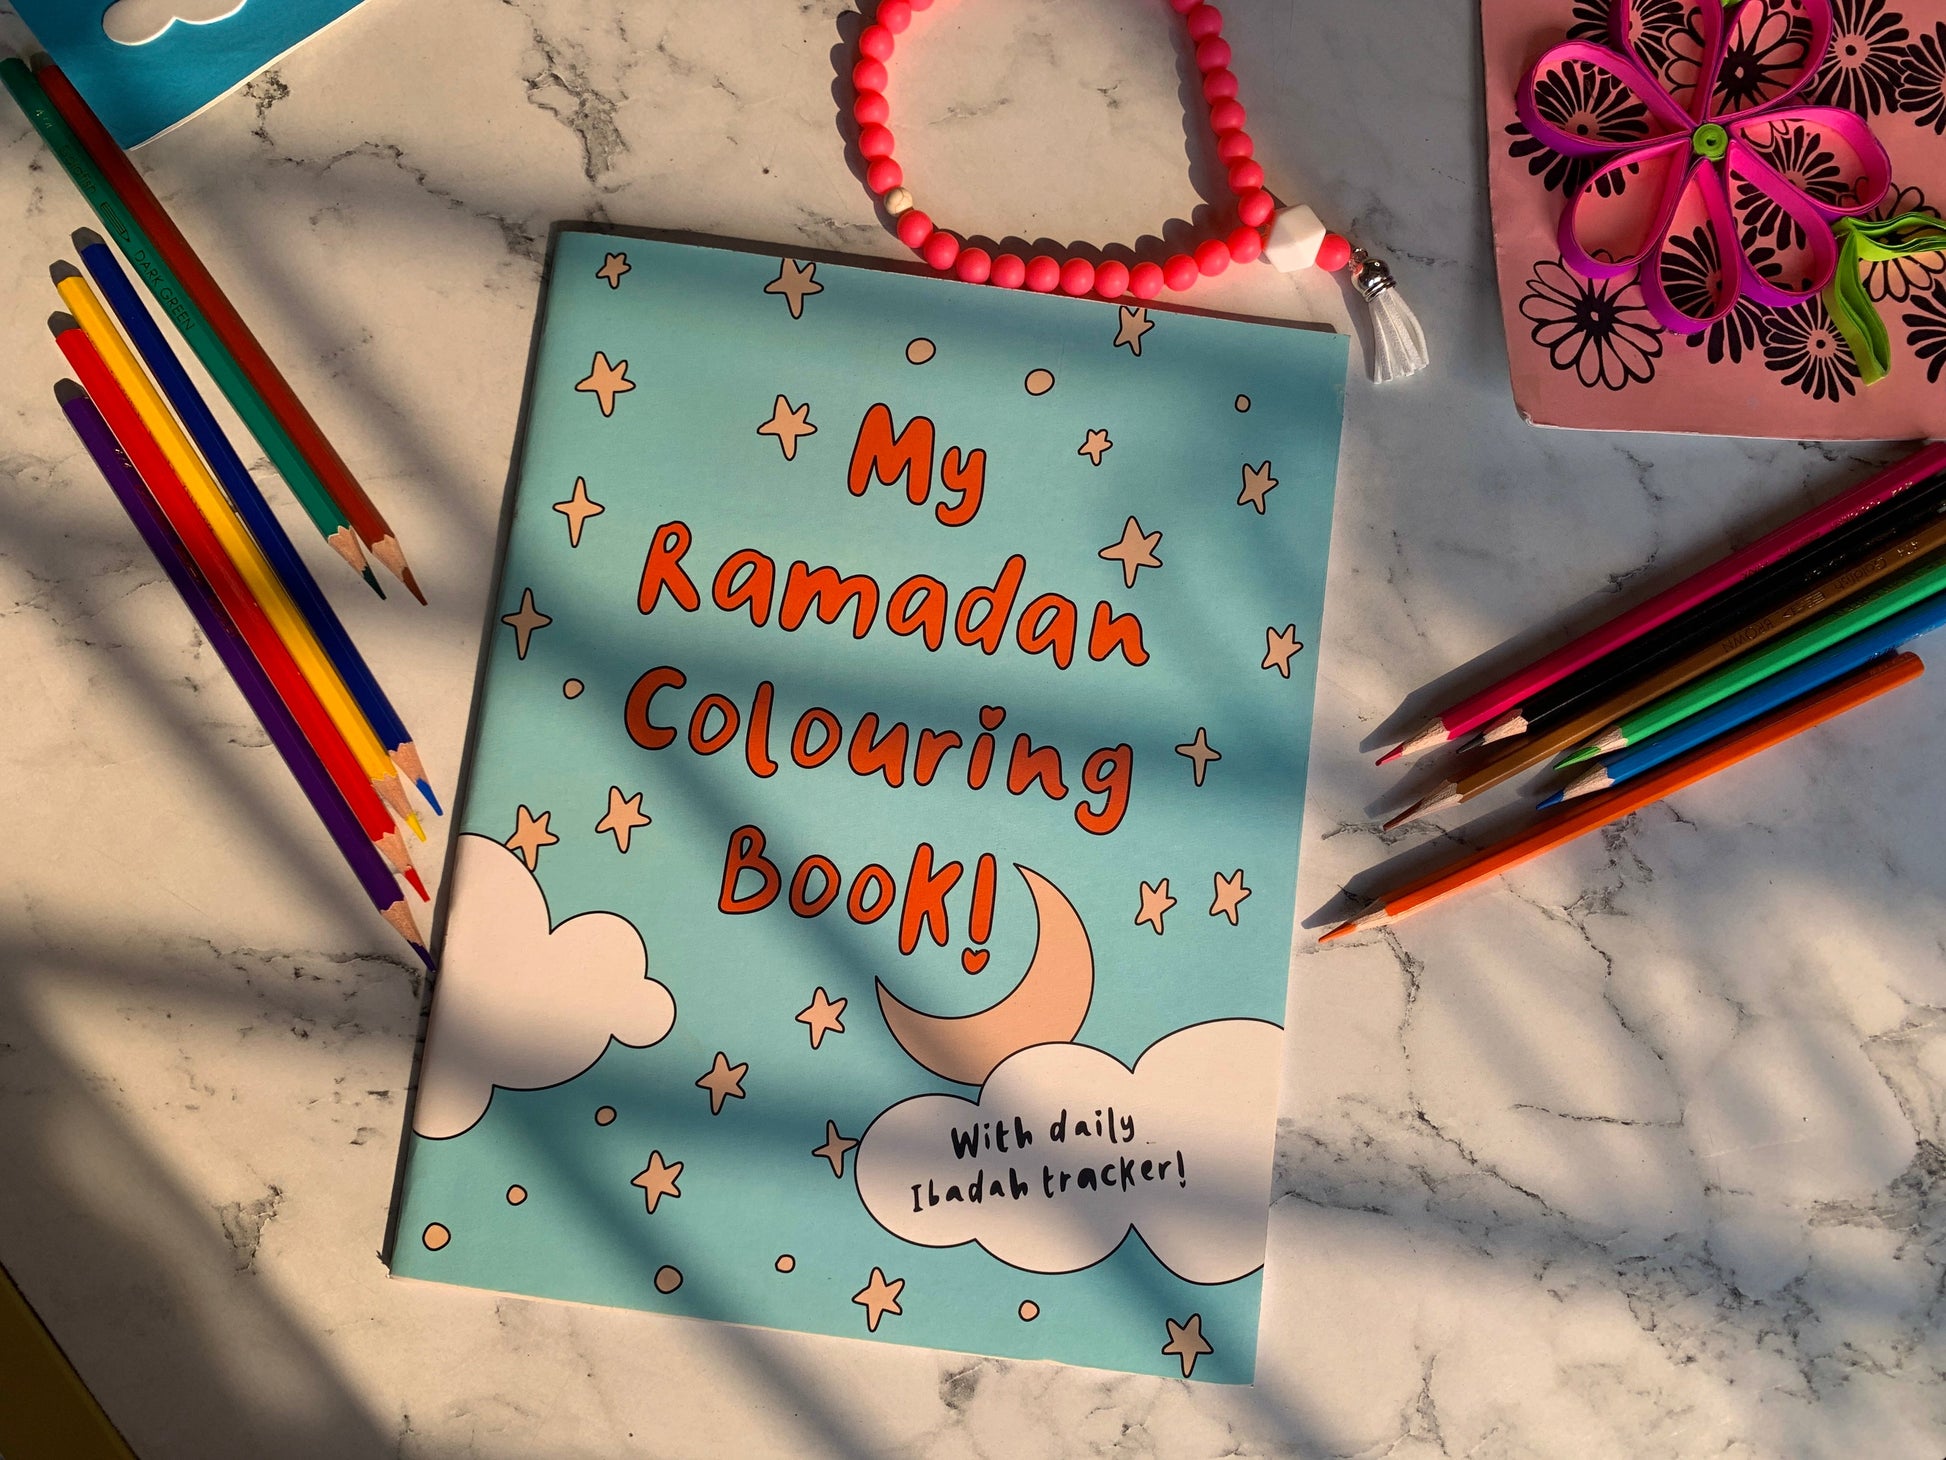 My
Ramadan
Colouring
Book!
With daily
Ibadah tracker!
DARK GREEN
BROWN